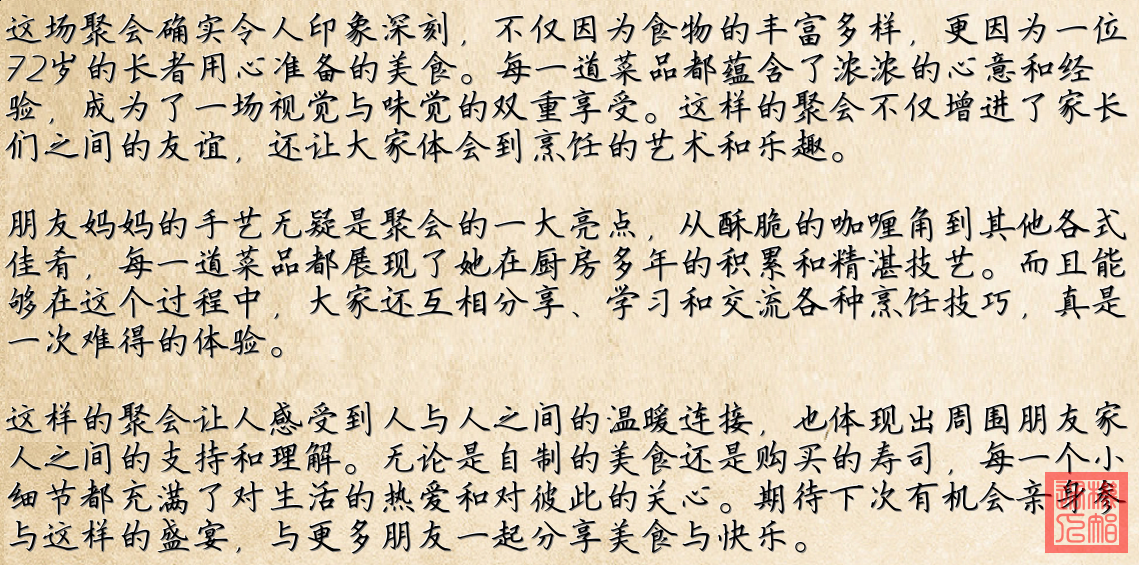 这场聚会确实令人印象深刻，不仅因为食物的丰富多样，更因为一位
72岁的长者用心准备的美食。每一道菜品都蕴含了浓浓的心意和经
验，成为了一场视觉与味觉的双重享受。这样的聚会不仅增进了家长
们之间的友谊，还让大家体会到烹饪的艺术和乐趣。
朋友妈妈的手艺无疑是聚会的一大亮点，从酥脆的咖喱角到其他各式
佳肴，每一道菜品都展现了她在厨房多年的积累和精湛技艺。而且能
够在这个过程中，大家还互相分享、学习和交流各种烹饪技巧，真是
一次难得的体验。
这样的聚会让人感受到人与人之间的温暖连接，也体现出周围朋友家
人之间的支持和理解。无论是自制的美食还是购买的寿司，每一个小
细节都充满了对生活的热爱和对彼此的关心。期待下次有机会亲身参
与这样的盛宴，与更多朋友一起分享美食与快乐。